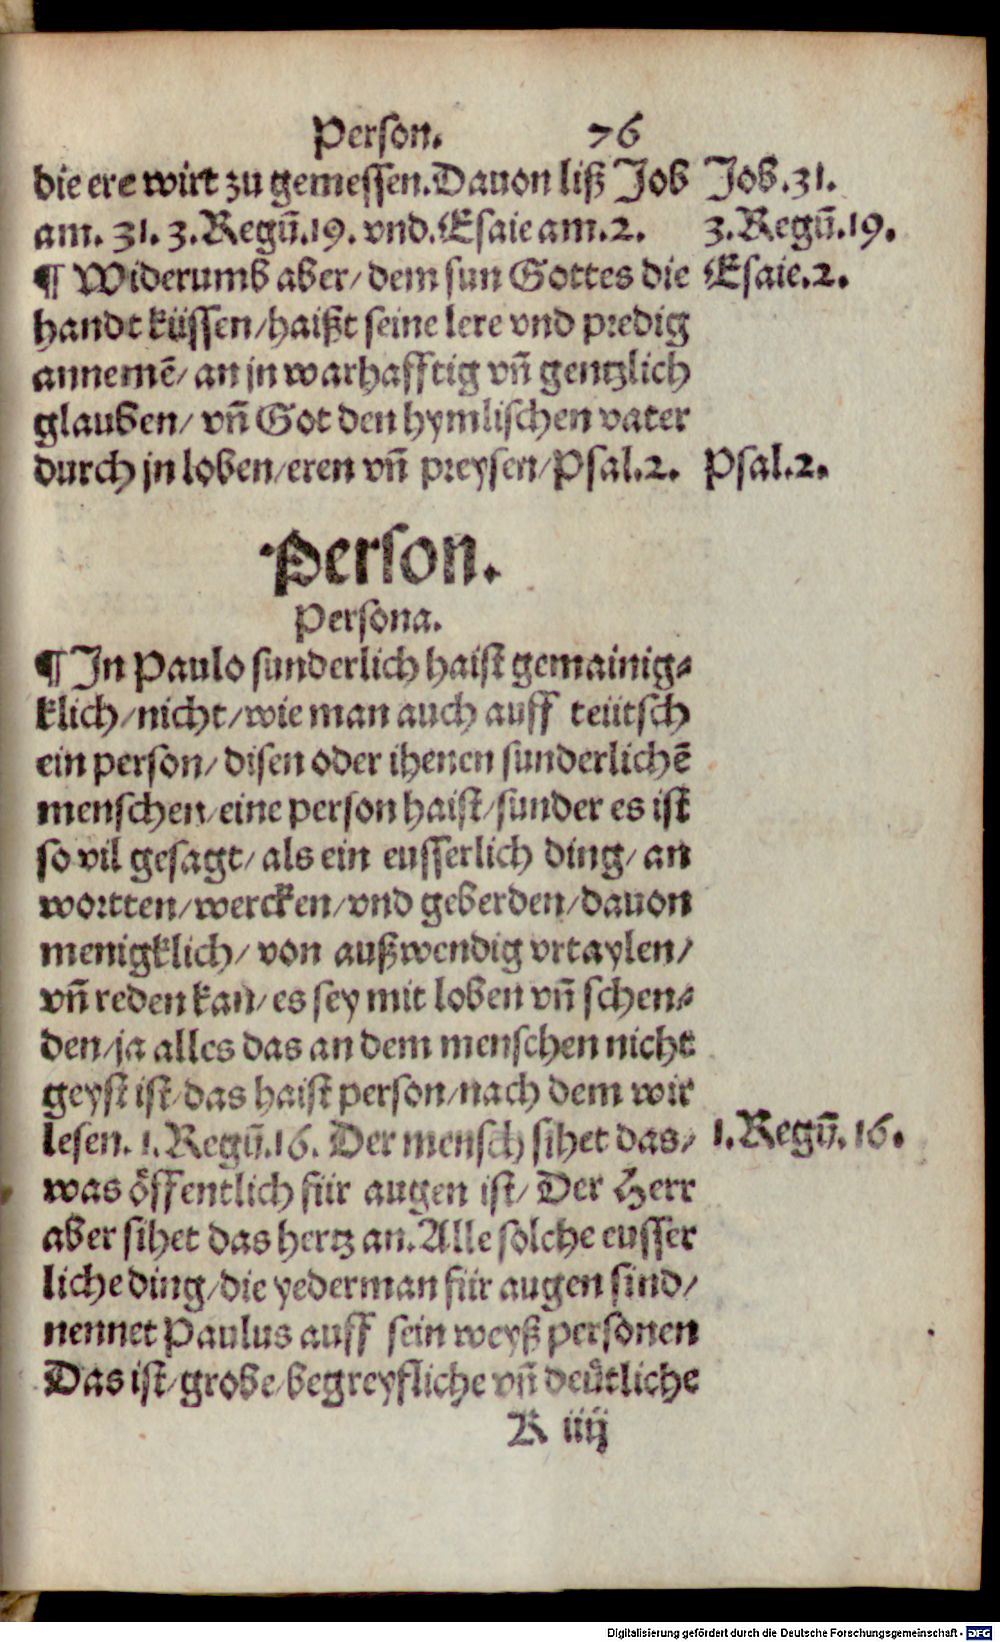 Person. 76
die ere wirt zu gemessen. Dauon liß Job Job. 31.
am. 31. 3. Regū. 19. vnd. Esaie am. 2. 3. Regū. 19.
¶ Widerumb aber/ dem sun Gottes die Esaie. 2.
handt küssen/ haißt seine lere vnd predig
annemē/ an jn warhafftig vñ gentzlich
glauben/ vñ Got den hymlischen vater
durch jn loben/ eren vñ preysen/ Psal. 2. Psal. 2.
Person.
Persona.
¶ In Paulo sunderlich haist gemainig⸗
klich/ nicht/ wie man auch auff teütsch
ein person/ disen oder ihenen sunderlichē
menschen/ eine person haist/ sunder es ist
so vil gesagt/ als ein eusserlich ding/ an
wortten/ wercken/ vnd geberden/ dauon
menigklich/ von außwendig vrtaylen/
vñ reden kan/ es sey mit loben vñ schen⸗
den/ ja alles das an dem menschen nicht
geyst ist/ das haist person/ nach dem wir
lesen. 1. Regū. 16. Der mensch sihet das/ 1. Regū. 16.
was öffentlich für augen ist/ Der Herr
aber sihet das hertz an. Alle solche eusser
liche ding/ die yederman für augen sind/
nennet Paulus auff sein weyß personen
Das ist/ grobe/ begreyfliche vñ deütliche
K iiij
Digitalisierung gefördert durch die Deutsche Forschungsgemeinschaft - DFG